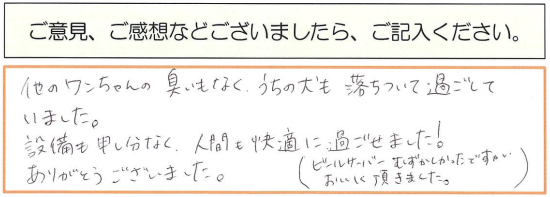 ご意見、ご感想などございましたら、ご記入ください。
他のワンちゃんの臭いもなく、うちの犬も落ちついて過ごして
いました。
設備も申し分なく、人間も快適に過ごせました!
ありがとうございました。
(ビールサーバーむずかしかったですがい
おいしく頂きました。)